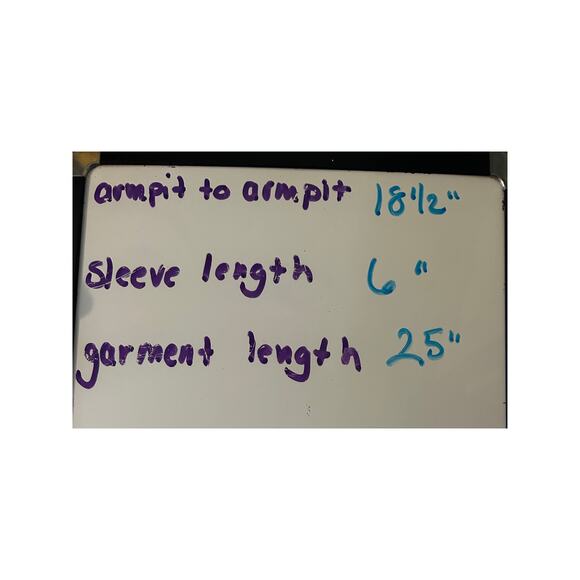 armpit to armpit 18 1/2"
sleeve length 6"
garment length 25"